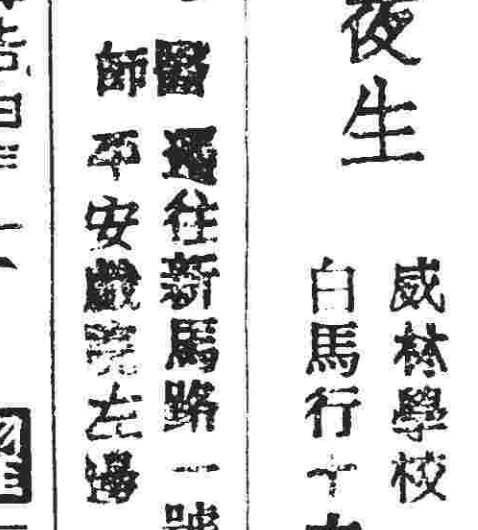 夜生
威林學校
白馬行十
醫師
遷往新馬路一號
平安戲院左邊